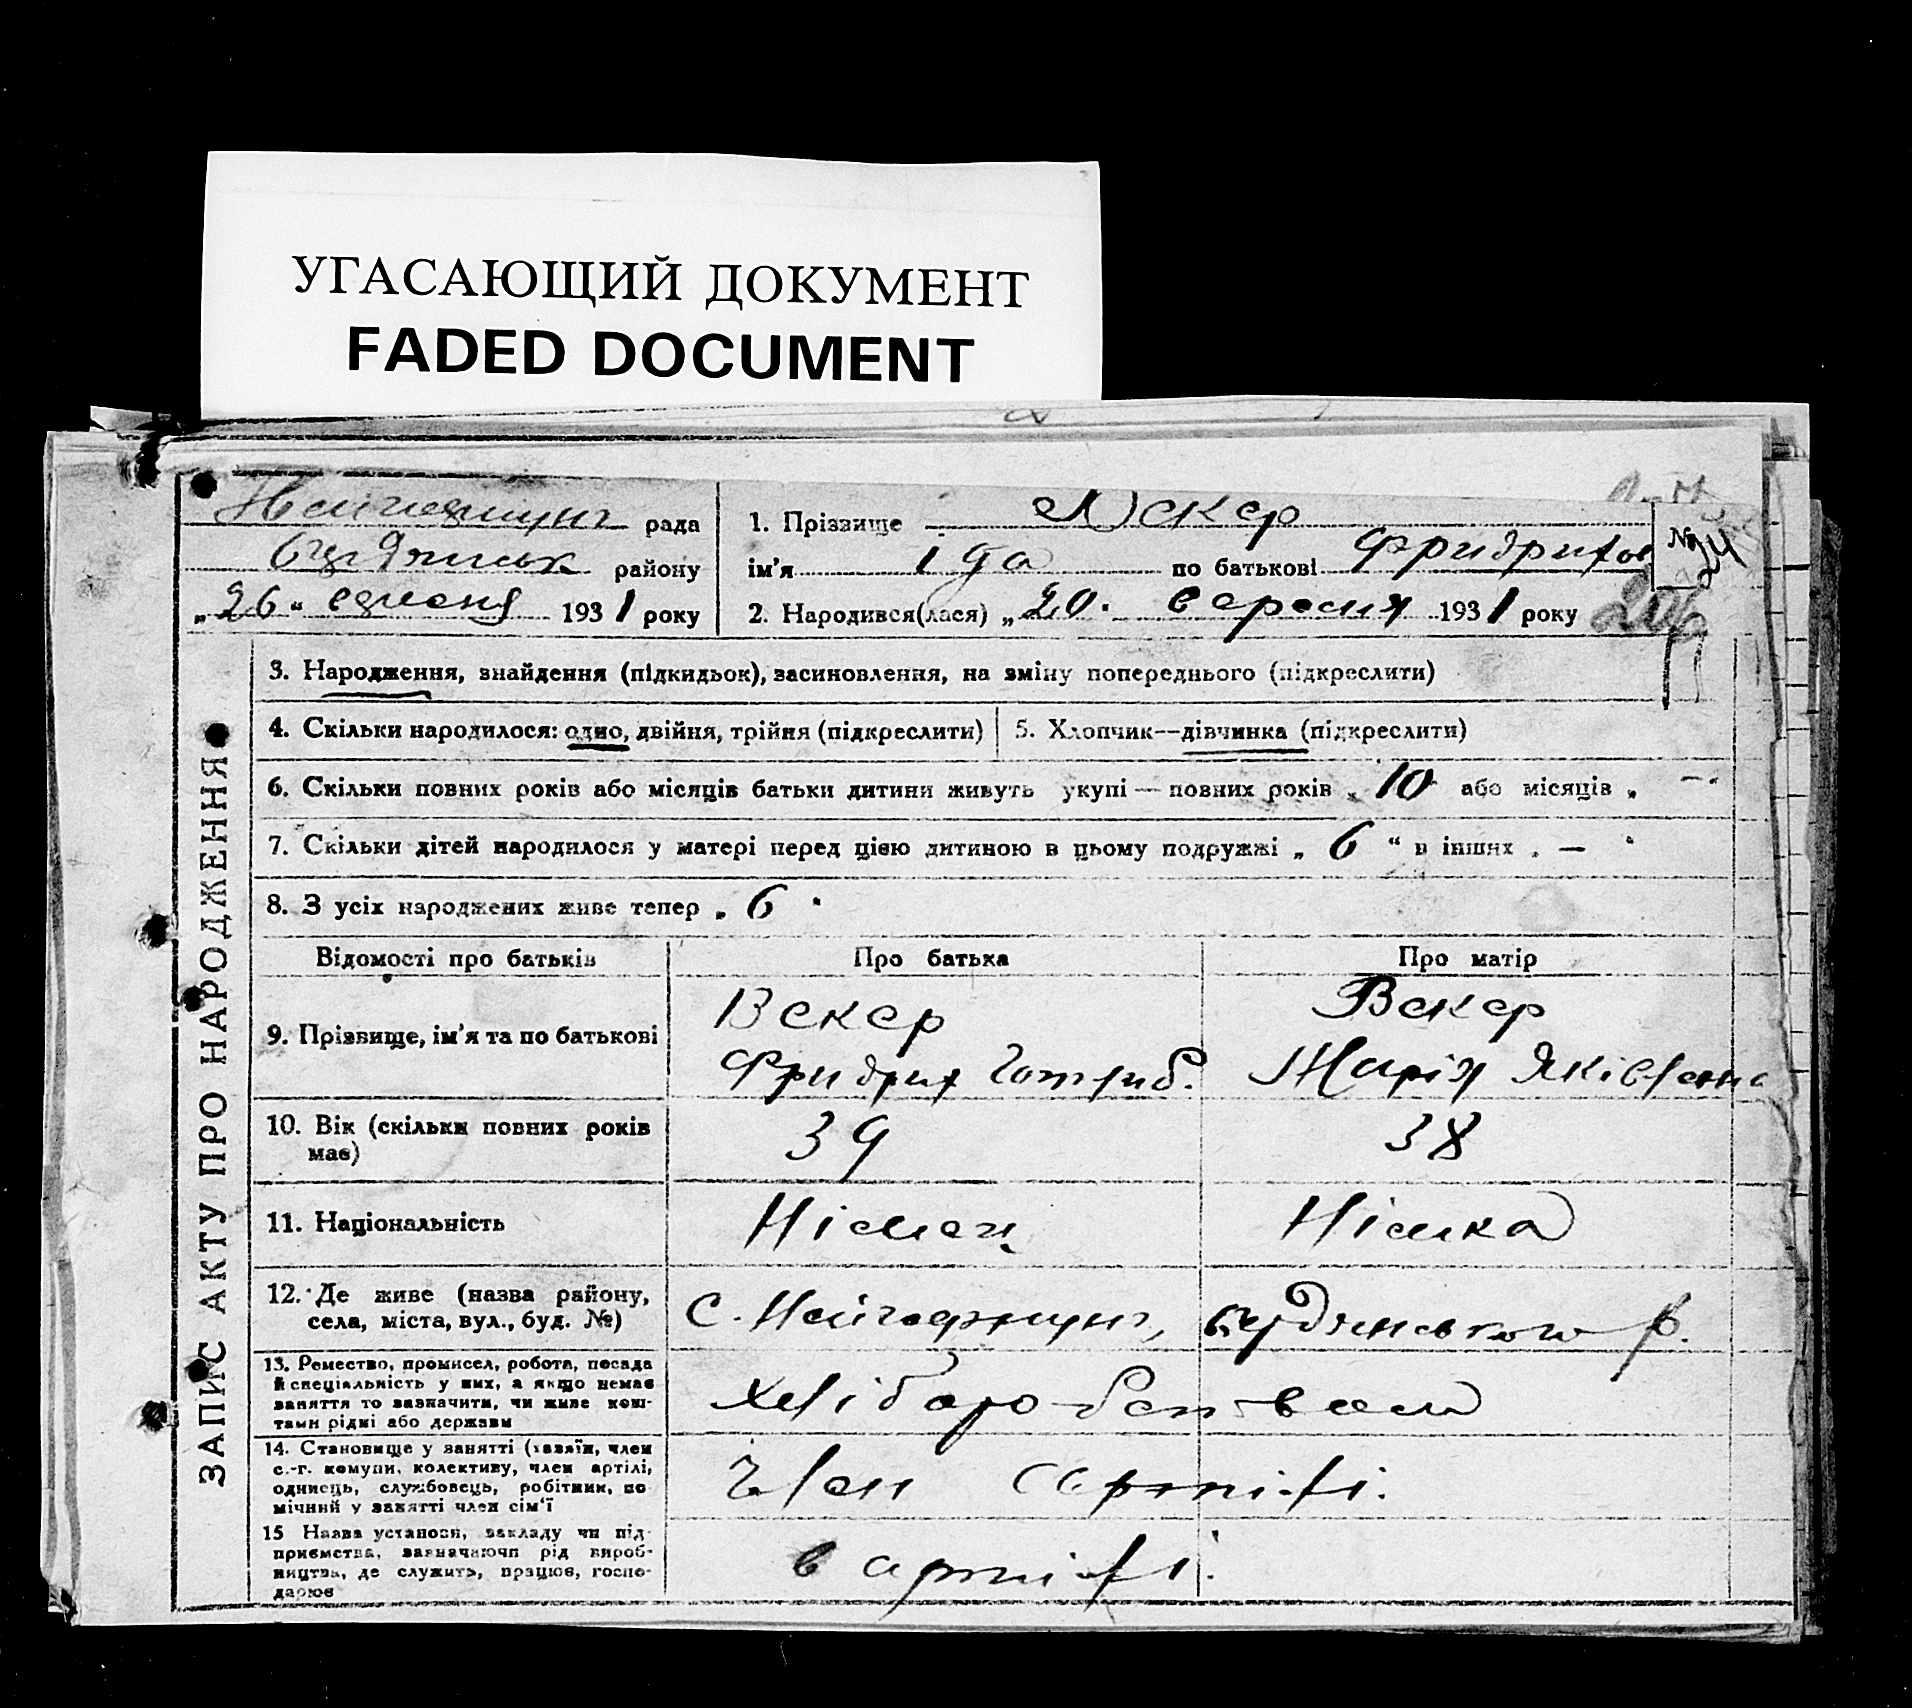 УГАСАЮЩИЙ ДОКУМЕНТ
FADED DOCUMENT
ЗАПИС АКТУ ПРО НАРОДЖЕННЯ
рада
району
„26“ 1931 року
1. Прізвище Векер
ім'я Іда по батькові Фридрихов
№ 24
2. Народився(лася) „20. вересня 1931 року
3. Народження, знайдення (підкидьок), засиновлення, на зміну попереднього (підкреслити)
4. Скільки народилося: одно, двійня, трійня (підкреслити)
5. Хлопчик—дівчинка (підкреслити)
6. Скільки повних років або місяців батьки дитини живуть укупі — повних років „ 10 або місяців „ —
7. Скільки дітей народилося у матері перед цією дитиною в цьому подружжі „ 6 “ в інших „ — “
8. З усіх народжених живе тепер „ 6 “
Відомості про батьків
Про батька
Про матір
9. Прізвище, ім'я та по батькові
Векер
Фридрих Готлиб.
Векер
Марія Яківлевна
10. Вік (скільки повних років
має)
39
38
11. Національність
Німец
Німка
12. Де живе (назва району,
села, міста, вул., буд. №)
с. р.
13. Ремество, промисел, робота, посада
й спеціяльність у них, а якщо немає
заняття то зазначити, чи живе кош-
тами рідні або держави
Хліборобством
14. Становище у занятті (хазяїн, член
с.-г. комуни, колективу, член артілі,
одинець, службовець, робітник, по
мічний у занятті член сім'ї
Член артілі.
15 Назва установи, закладу чи під-
приємства, зазначаючи рід вироб-
ництва, де служить, працює, госпо-
дарює
в артілі.